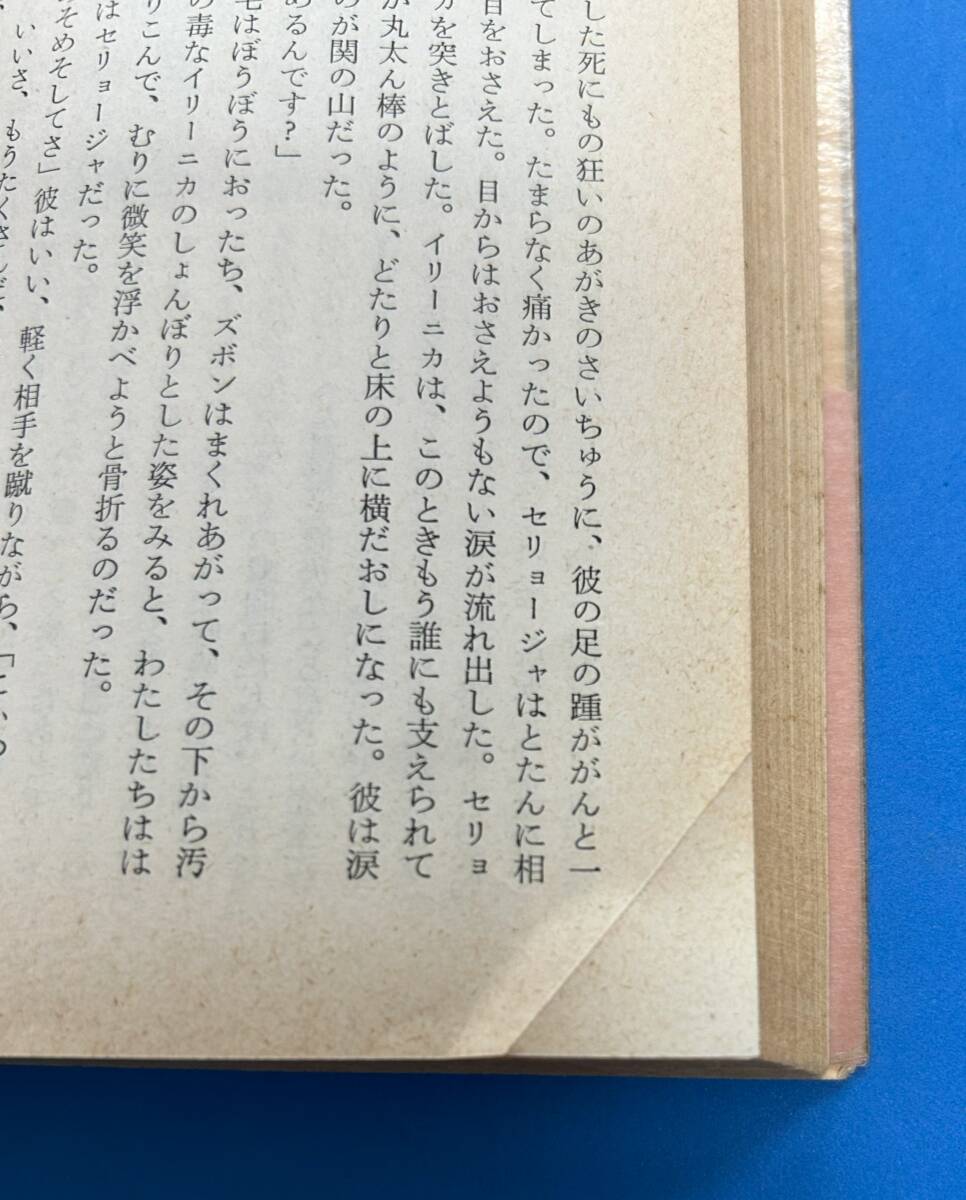 した死にもの狂いのあがきのさいちゅうに、彼の足の踵ががんと一
てしまった。たまらなく痛かったので、セリョージャはとたんに相
目をおさえた。目からはおさえようもない涙が流れ出した。セリョ
カを突きとばした。イリーニカは、このときもう誰にも支えられて
が丸太ん棒のように、どたりと床の上に横だおしになった。彼は涙
のが関の山だった。
あるんです？」
毛はぼうぼうにおったち、ズボンはまくれあがって、その下から汚
の毒なイリーニカのしょんぼりとした姿をみると、わたしたちはは
りこんで、むりに微笑を浮かべようと骨折るのだった。
はセリョージャだった。
めそめそしてさ」彼はいい、軽く相手を蹴りながら、「
いいさ、もうたくさんだよ